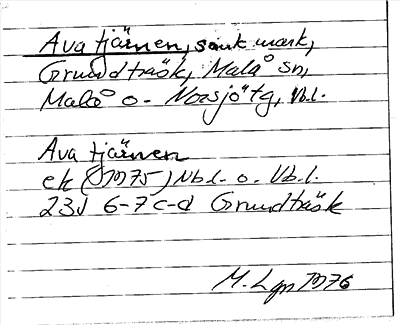 Ava tjärnen, sank mark,
Grundträsk, Malå sn,
Malå o. Norsjö tg, Vb.l.
Ava tjärnen
ek (1975) Nb.l. o. Vb.l.
23J 6-7 c-d Grundträsk
M. Lgn 1976